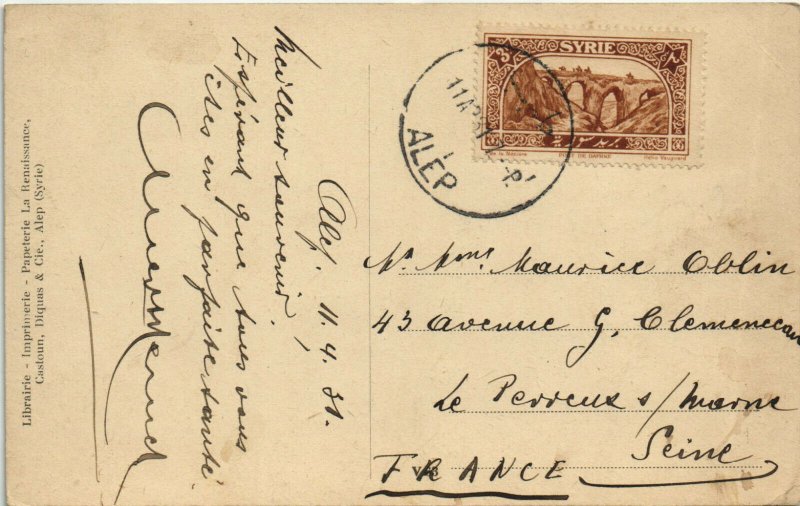 Librairie - Imprimerie - Papeterie La Renaissance,
Castoun, Diquas & Cie., Alep (Syrie)
Alep. 11.4.31.
Meilleur souvenir.
Espérant que tous vous
êtes en parfaite santé
SYRIE
3
ALEP
PONT DE DAPHNE
Hélio Vaugirard
Mr Mme Maurice Oblin
43 avenue G. Clemenceau
Le Perreux s/Marne
Seine
FRANCE